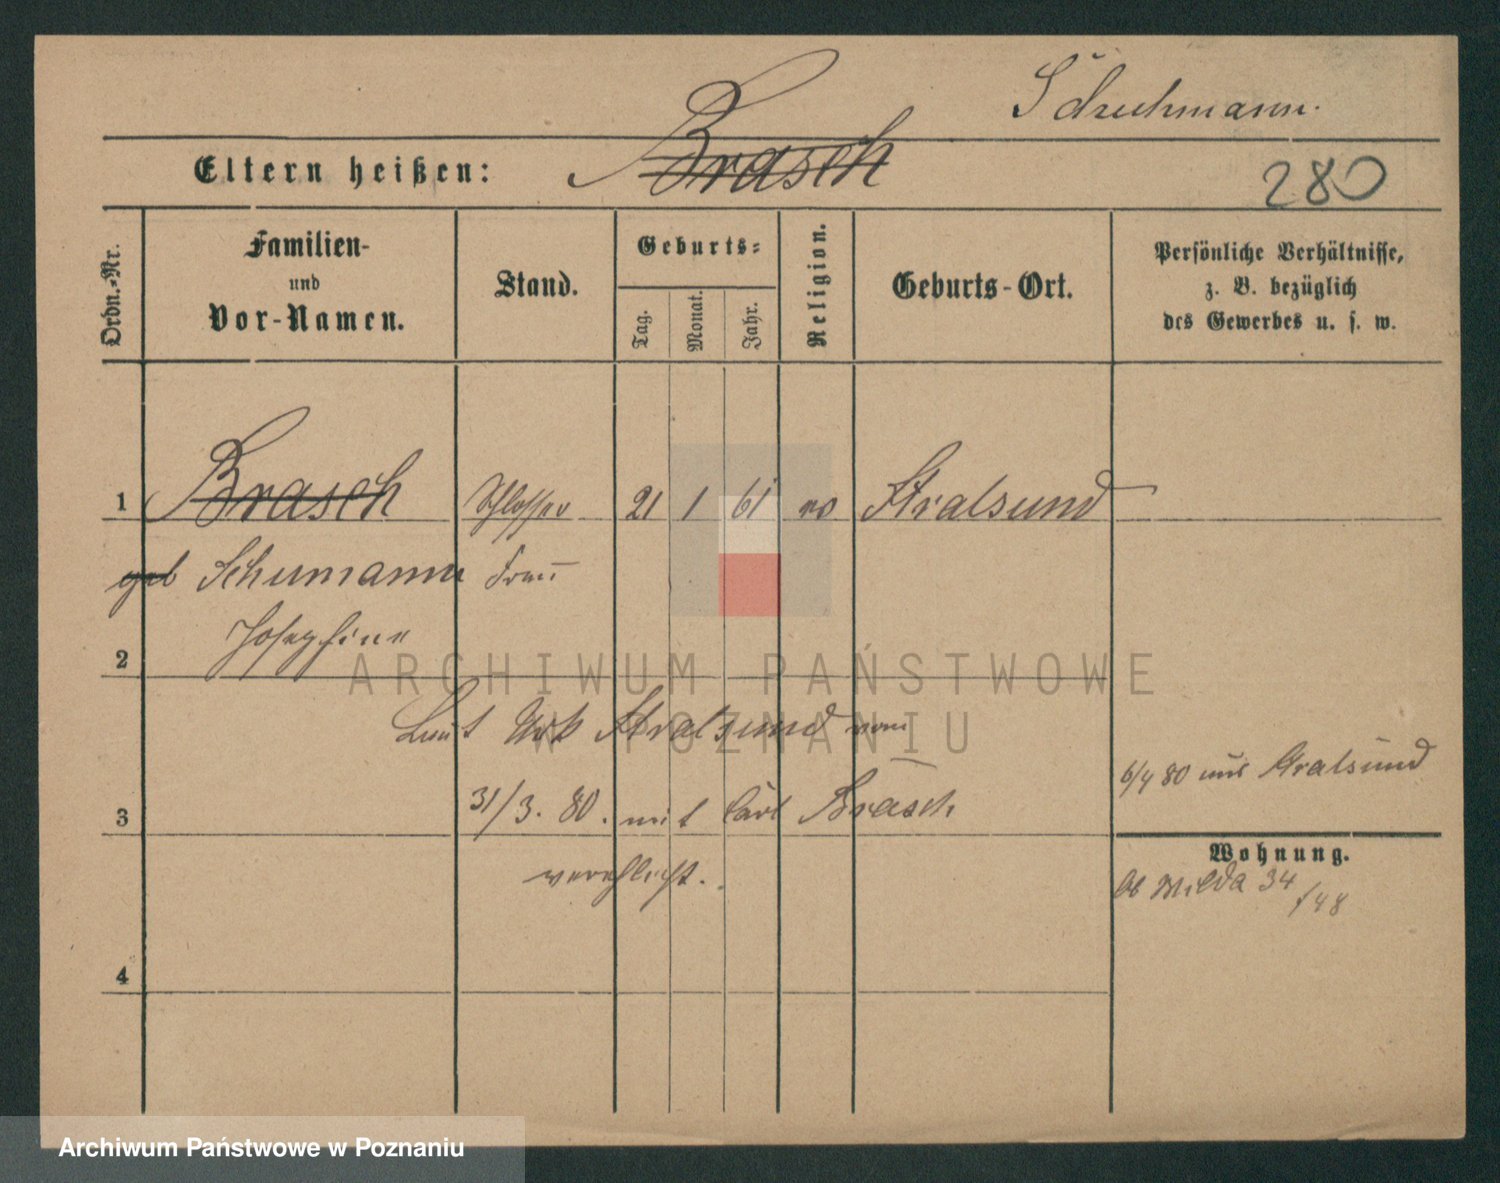 Schuhmann.
Brasch
Eltern heißen:
280
Ordn.-Nr.
Familien-
und
Vor-Namen.
Stand.
Geburts-
Tag.
Monat.
Jahr.
Religion.
Geburts-Ort.
Persönliche Verhältnisse,
z. B. bezüglich
des Gewerbes u. s. w.
1 Brasch Schlosser 21 1 61 Stralsund
geb Schumann Frau
Josephine
2
ARCHIWUM PAŃSTWOWE
W POZNANIU
Laut Urk Stralsund vom
31/3. 80. mit Carl Brasch
verehlicht.
3
4
6/4 80 aus Stralsund
Wohnung.
Ob Wilda 34
/48
Archiwum Państwowe w Poznaniu